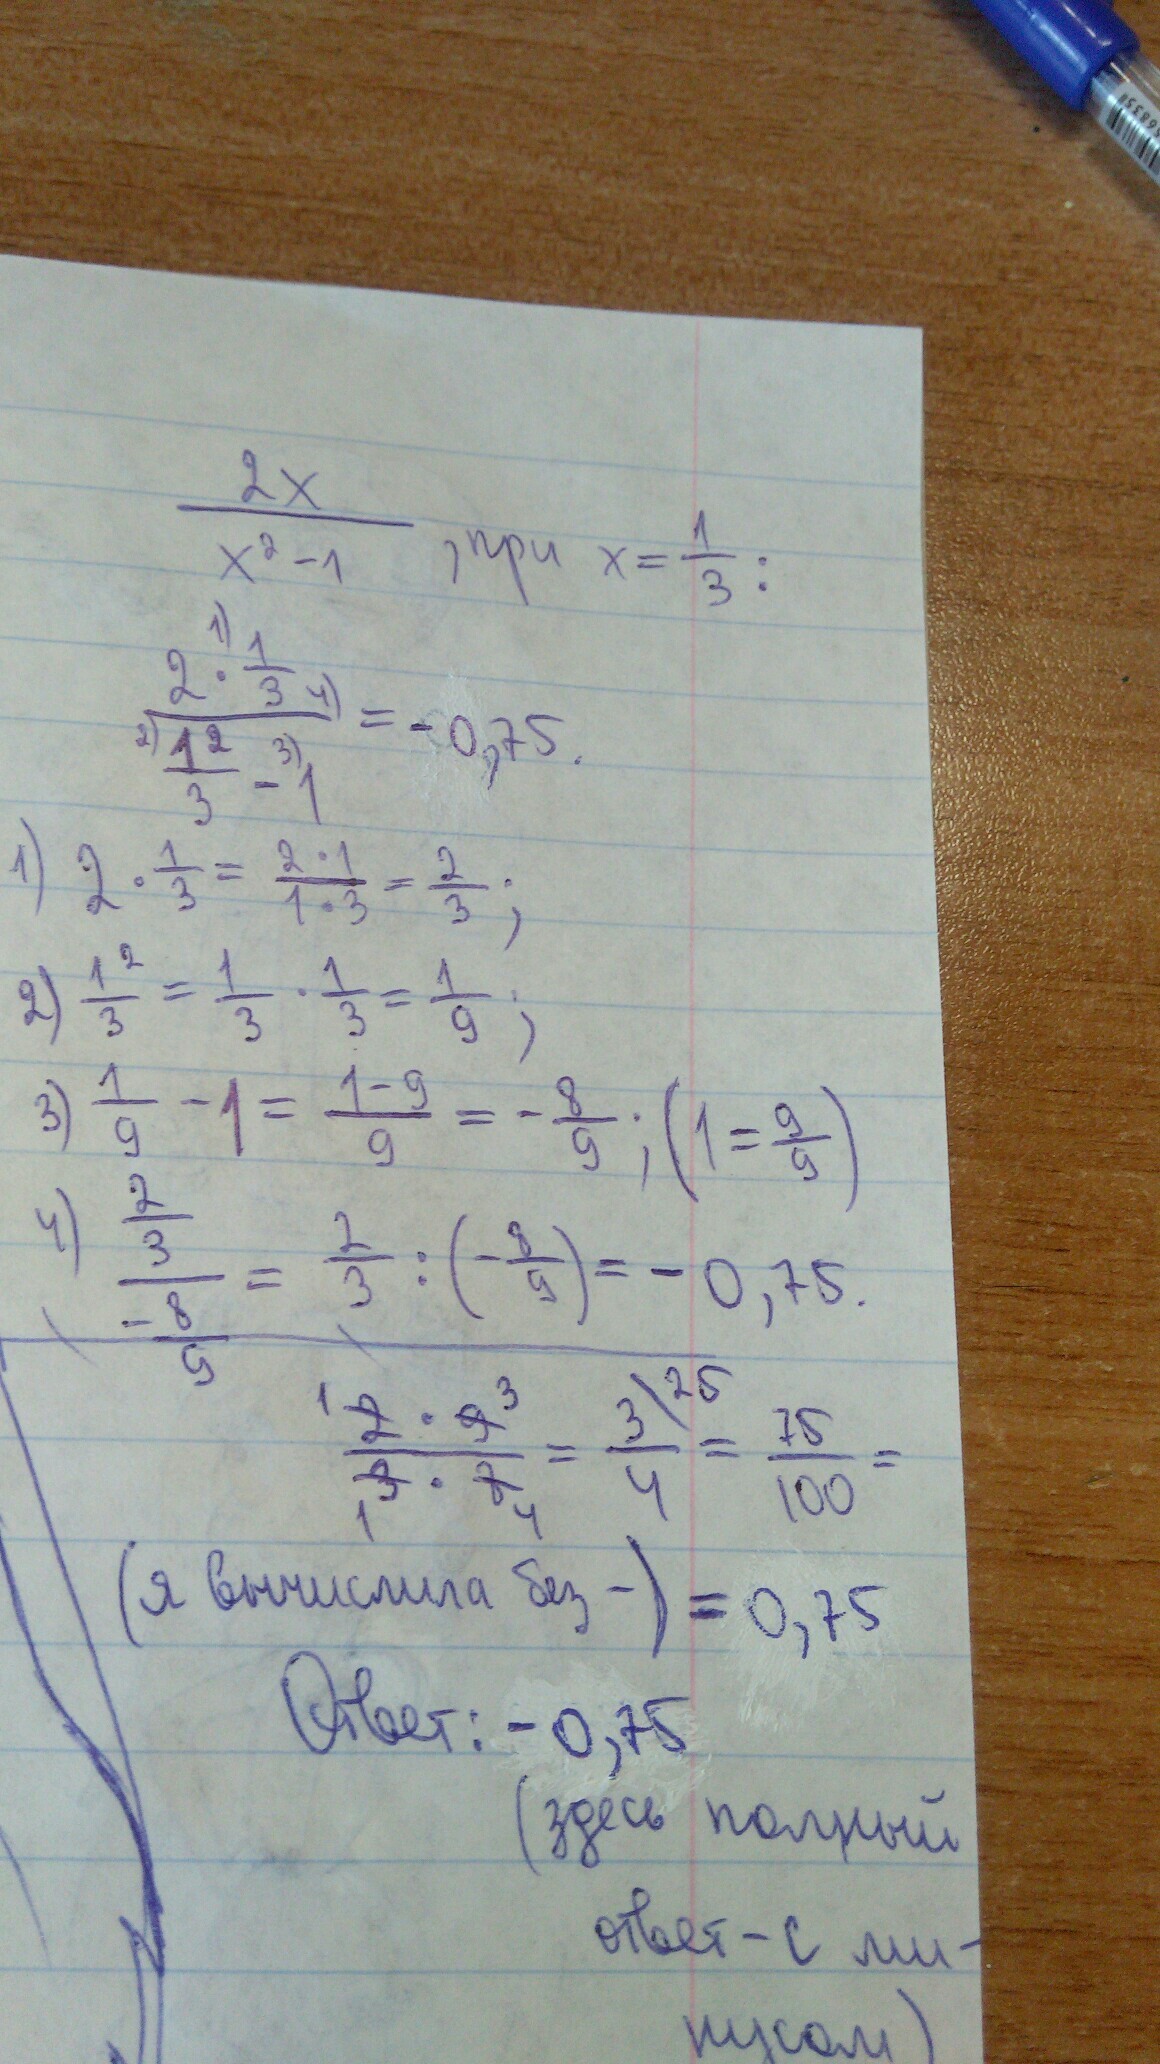 2x / x² - 1 , при x = 1/3 :
1) 2 · 1/3 4) / 2) 1²/3 - 3) 1 = - 0,75.
1) 2 · 1/3 = 2 · 1 / 1 · 3 = 2/3 ;
2) 1²/3 = 1/3 · 1/3 = 1/9 ;
3) 1/9 - 1 = 1 - 9 / 9 = - 8/9 ; (1 = 9/9)
4) 2/3 / - 8/9 = 2/3 : (- 8/9) = - 0,75.
1 2 · 9 3 / 1 3 · 8 4 = 3\25 / 4 = 75/100 =
(я вычислила без -) = 0,75
Ответ: - 0,75
(здесь полный
ответ - с ми-
нусом)